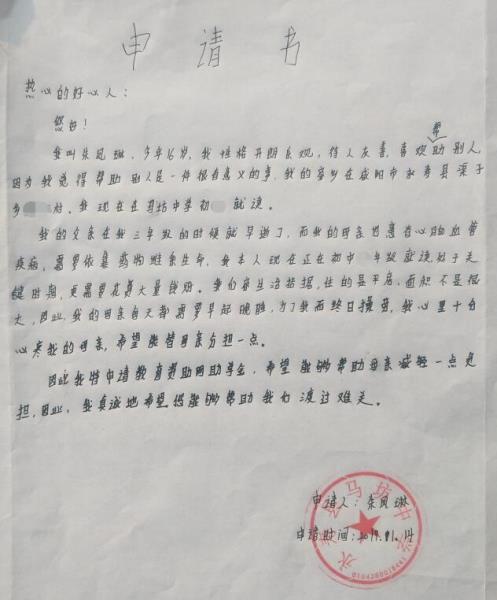 申请书
热心的好心人：
您好！
我叫朱凤琳，今年16岁，我性格开朗乐观，待人友善，喜欢帮助别人，
因为我觉得帮助别人是一件很有意义的事，我的家乡在咸阳市永寿县渠子
乡 村。我现在在马坊中学初 就读。
我的父亲在我三年级的时候就早逝了，而我的母亲也患有心脑血管
疾病，需要依靠药物维系生命，我本人现在正在初中 年级就读，处于关
键时期，更需要花费大量钱财。我们家生活拮据，住的是平房，面积不是很
大，因此，我的母亲每天都需要早起晚睡，为了我而终日操劳，我心里十分
心寒我的母亲，希望能替母亲分担一点。
因此我特申请教育费助困助学金，希望能够帮助母亲减轻一点负
担，因此，我真诚地希望您能够帮助我们渡过难关。
申请人：朱凤琳
申请时间：2019.
永寿县马坊中学